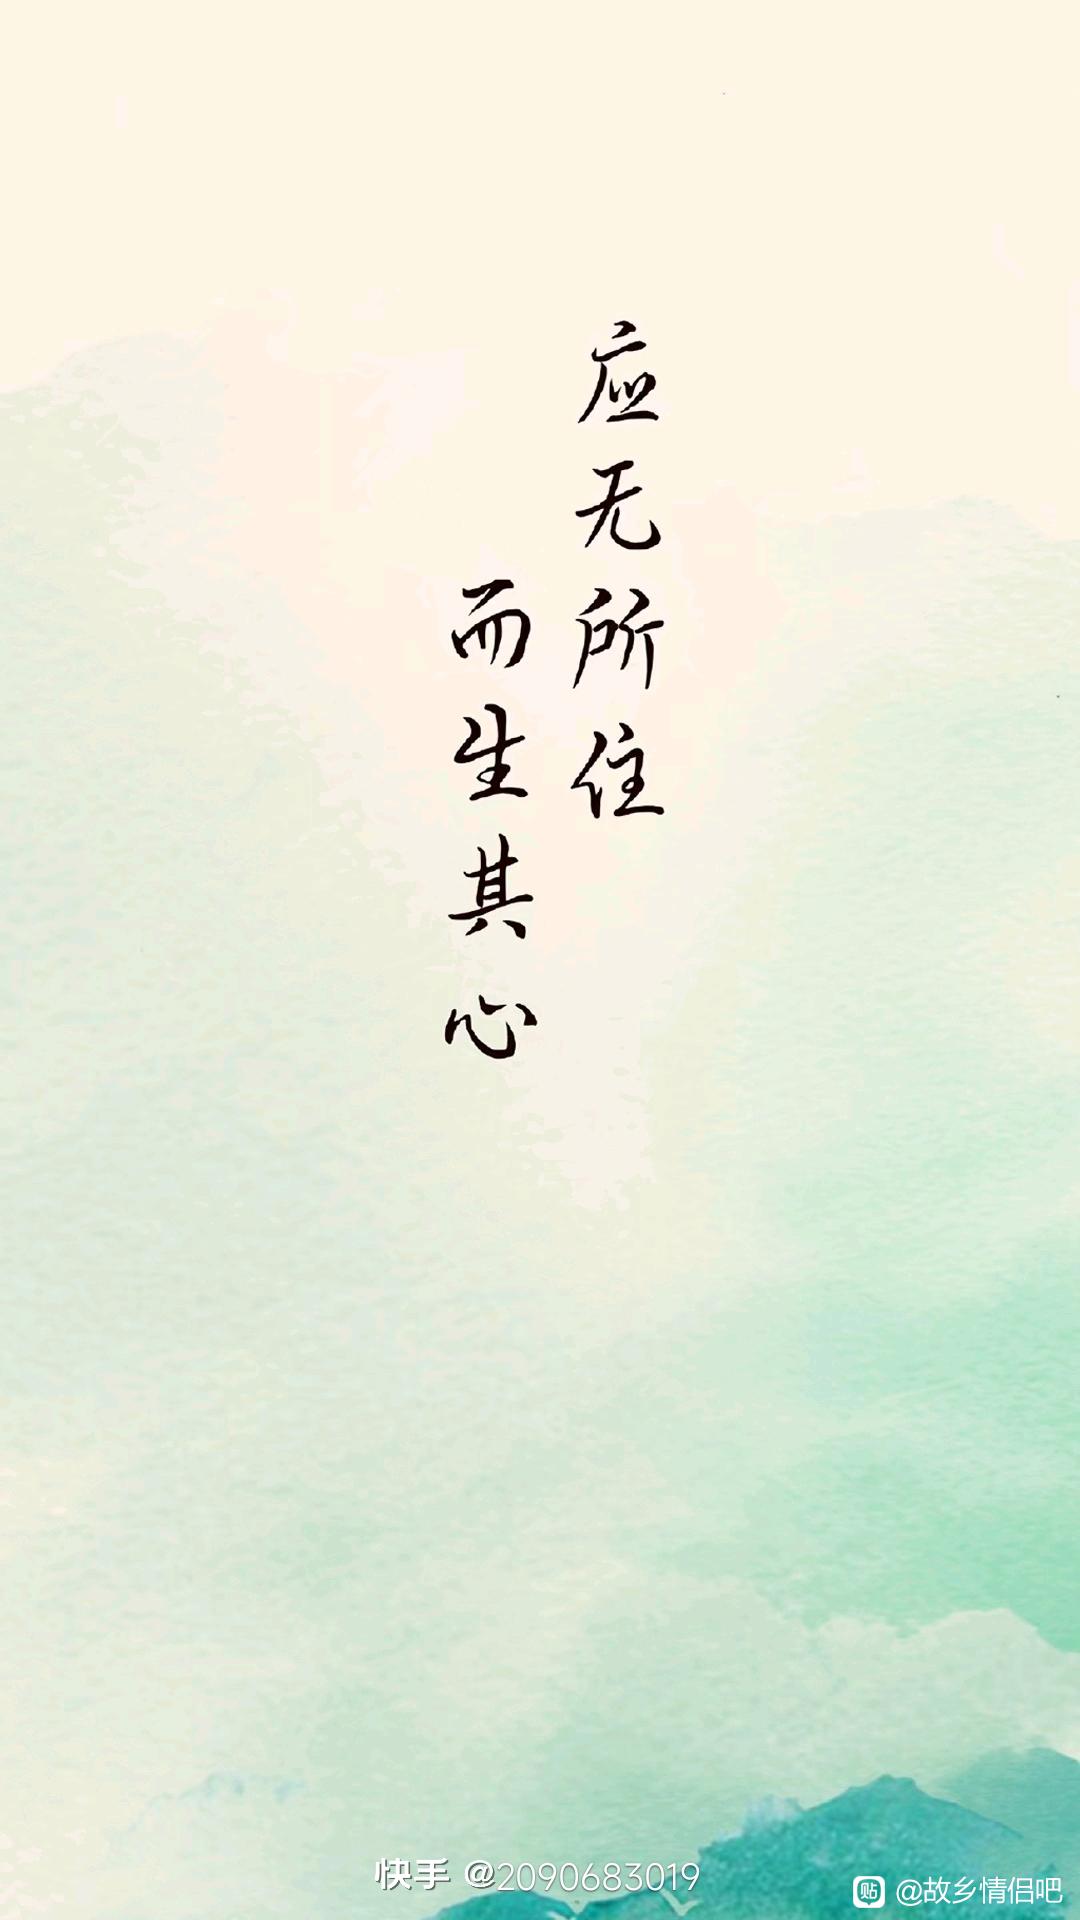 应无所住
而生其心
快手 @2090683019
贴 @故乡情侣吧